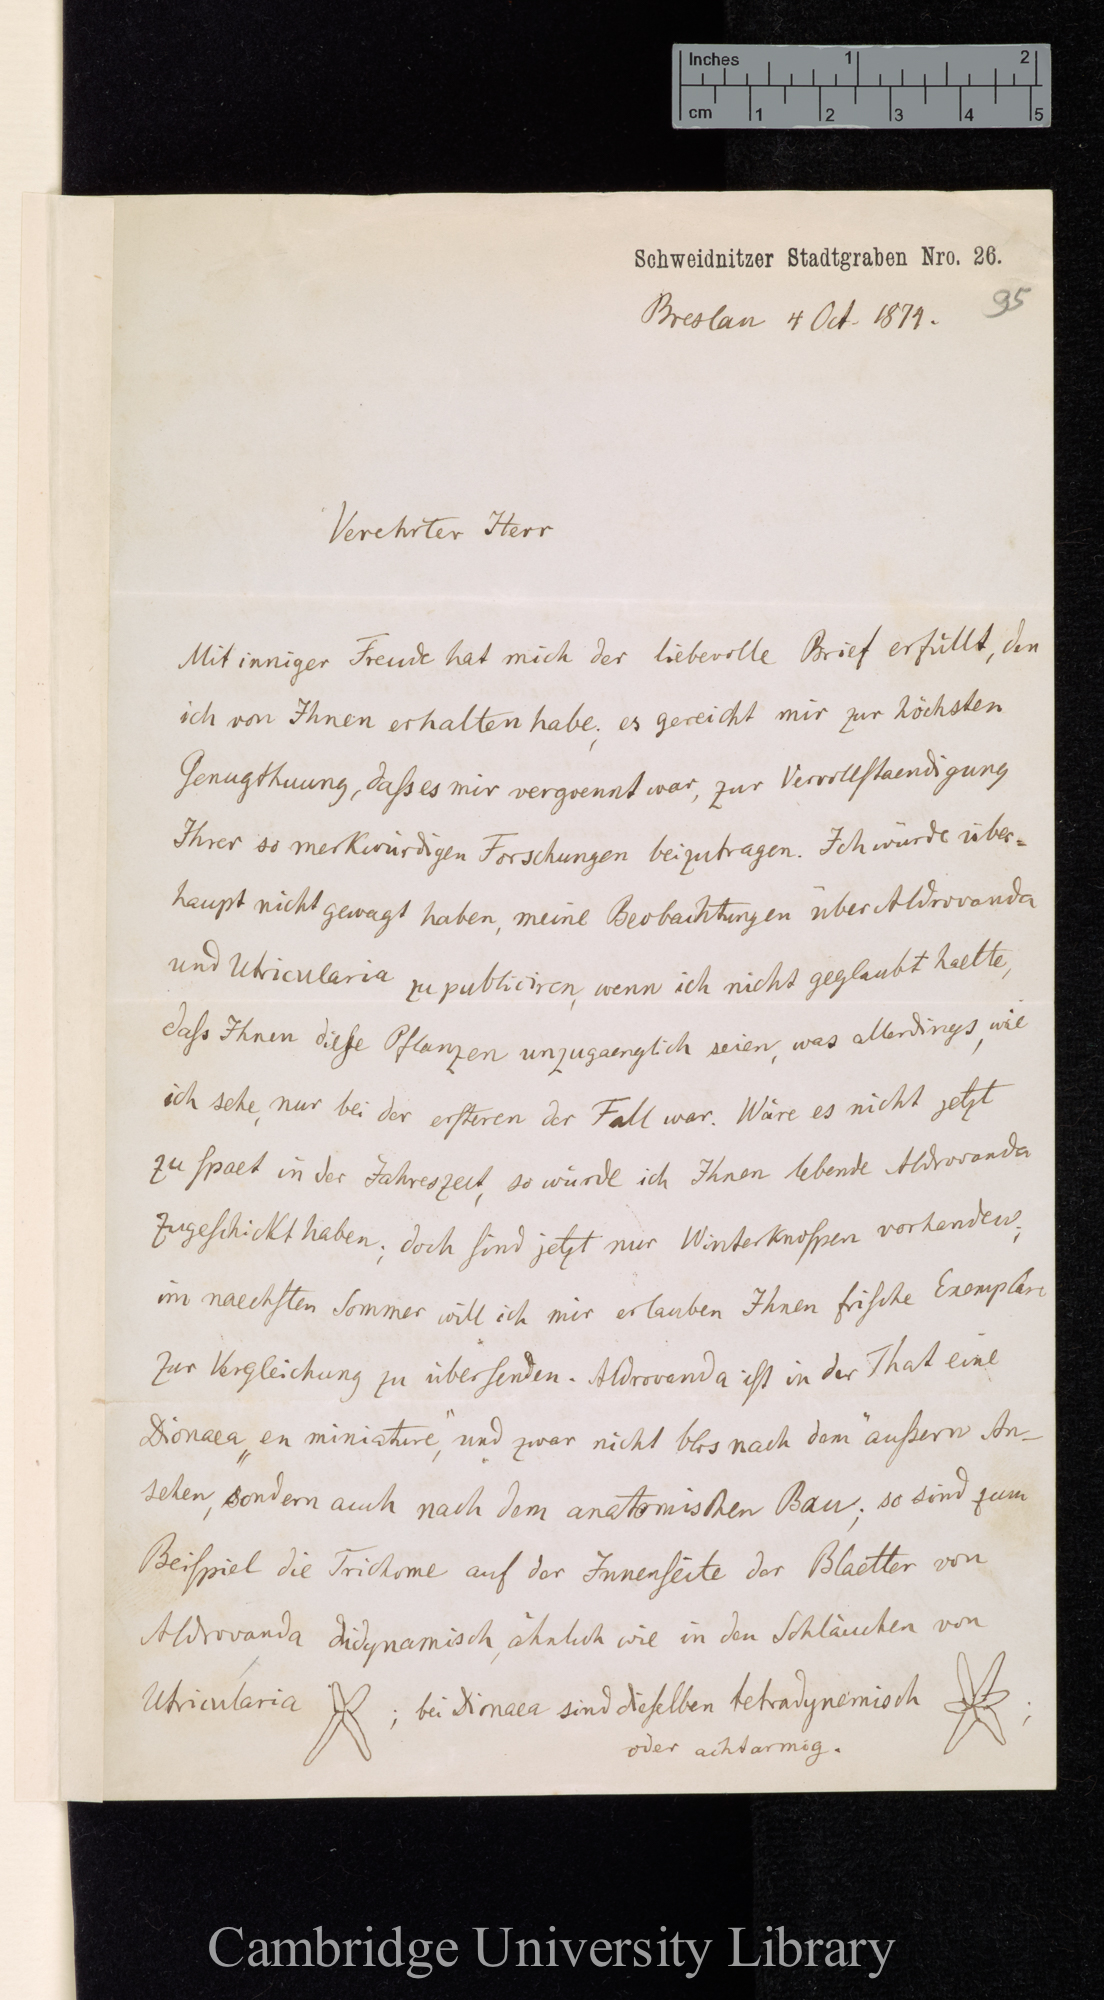 Inches 1 2
cm 1 2 3 4 5
Schweidnitzer Stadtgraben Nro. 26.
95
Breslau 4 Oct. 1874.
Verehrter Herr
Mit inniger Freude hat mich der liebevolle Brief erfüllt, den
ich von Ihnen erhalten habe; es gereicht mir zur höchsten
Genugthuung, daſs es mir vergoennt war, zur Vervollſtaendigung
Ihrer so merkwürdigen Forschungen beizutragen. Ich würde über=
haupt nicht gewagt haben, meine Beobachtungen über Aldrovanda
und Utricularia zu publiciren, wenn ich nicht geglaubt haette,
daſs Ihnen dieſe Pflanzen unzugaenglich seien, was allerdings, wie
ich sehe, nur bei der erſteren der Fall war. Wäre es nicht jetzt
zu ſpaet in der Jahreszeit, so würde ich Ihnen lebende Aldrovanda
zugeſchickt haben; doch ſind jetzt nur Winterknoſpen vorhanden;
im naechſten Sommer will ich mir erlauben Ihnen friſche Exemplare
zur Vergleichung zu überſenden. Aldrovanda iſt in der That eine
Dionaea „en miniature", und zwar nicht blos nach dem äuſsern An-
sehen, sondern auch nach dem anatomischen Bau; so sind zum
Beiſpiel die Trichome auf der Innenſeite der Blaetter von
Aldrovanda didynamisch, ähnlich wie in den Schläuchen von
Utricularia ; bei Dionaea sind dieſelben tetradynamisch ;
oder achtarmig.
Cambridge University Library